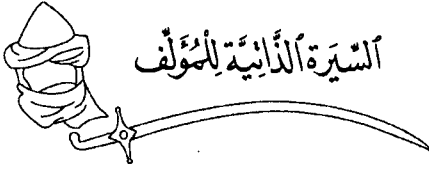 ٱلسِّيرَة ٱلذَّاتِيَّة لِلْمُؤَلِّف